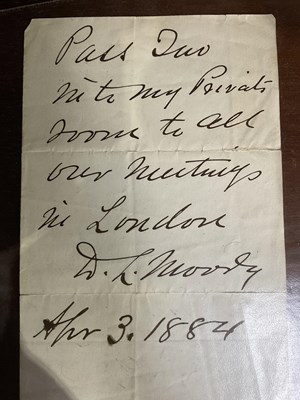 Pass Two
into my Private
room to all
our meetings
in London
D. L. Moody
Apr 3. 1884